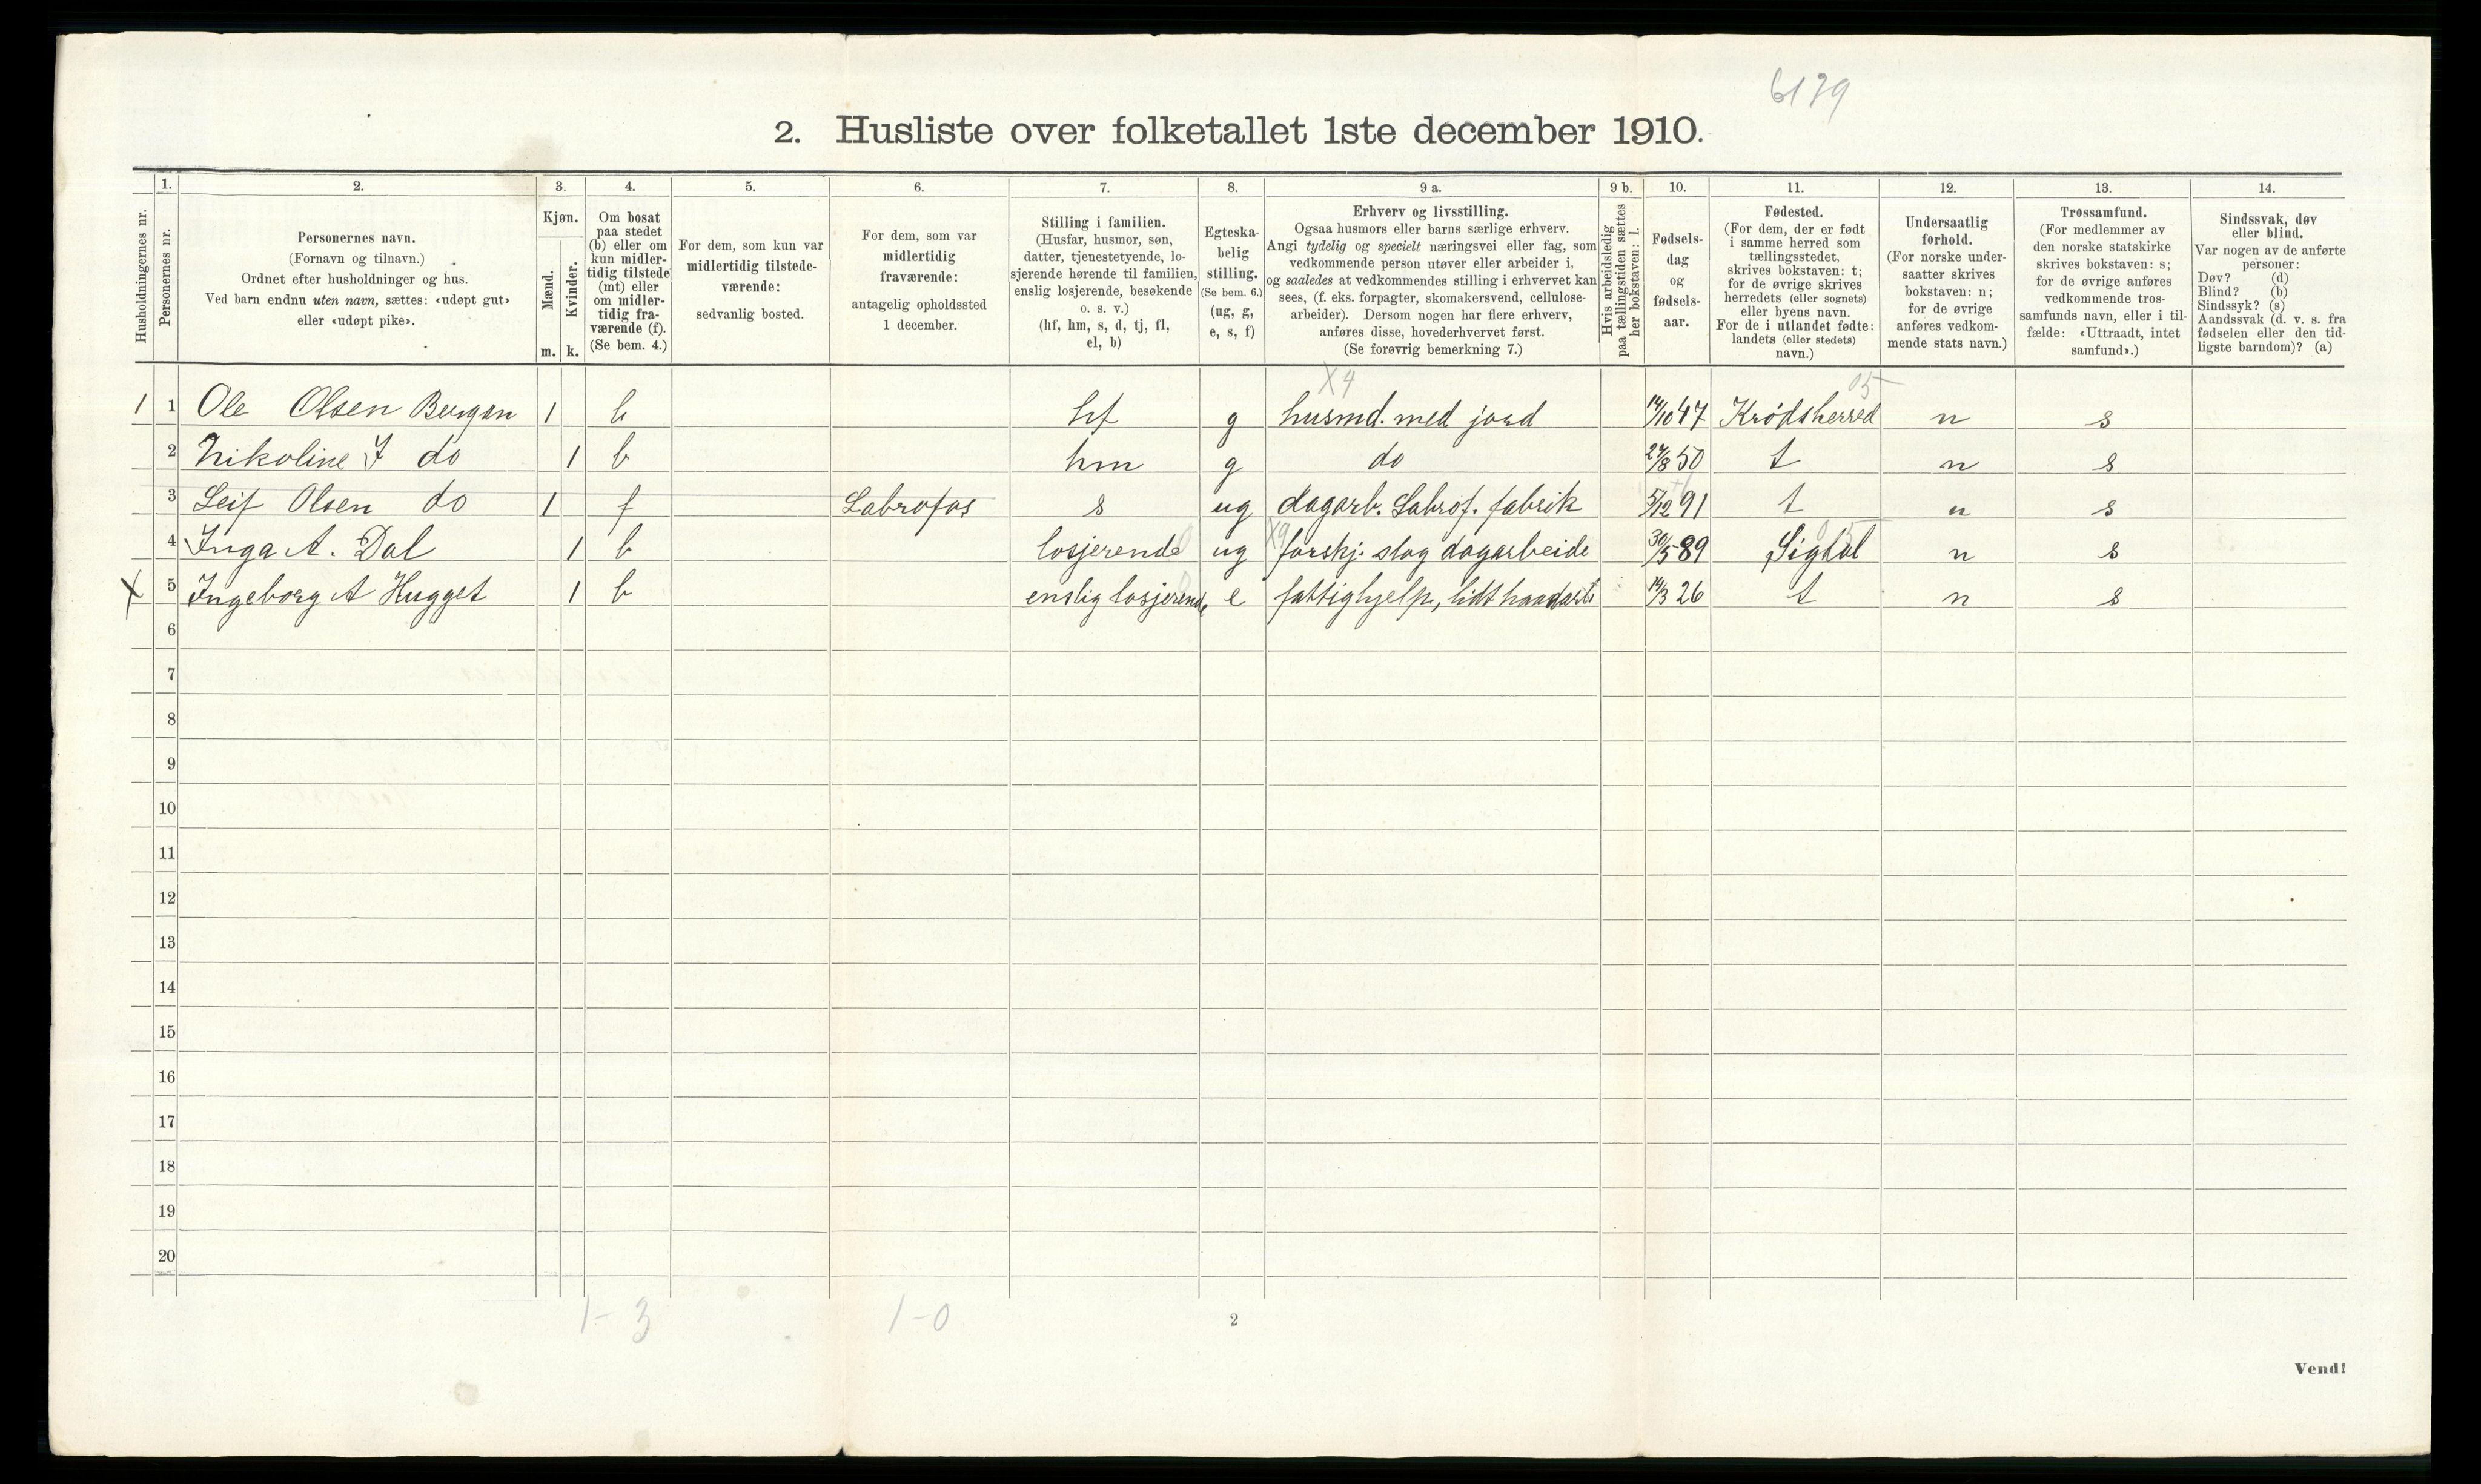 6179
2. Husliste over folketallet 1ste december 1910.
1. 2. 3. 4. 5. 6. 7. 8. 9 a. 9 b. 10. 11. 12. 13. 14.
Husholdningernes nr.
Personernes nr.
Personernes navn.
(Fornavn og tilnavn.)
Ordnet efter husholdninger og hus.
Ved barn endnu uten navn, sættes: «udøpt gut»
eller «udøpt pike».
Kjøn.
Mænd.
Kvinder.
m. k.
Om bosat
paa stedet
(b) eller om
kun midler-
tidig tilstede
(mt) eller
om midler-
tidig fra-
værende (f).
(Se bem. 4.)
For dem, som kun var
midlertidig tilstede-
værende:
sedvanlig bosted.
For dem, som var
midlertidig
fraværende:
antagelig opholdssted
1 december.
Stilling i familien.
(Husfar, husmor, søn,
datter, tjenestetyende, lo-
sjerende hørende til familien,
enslig losjerende, besøkende
o. s. v.)
(hf, hm, s, d, tj, fl,
el, b)
Egteska-
belig
stilling.
(Se bem. 6.)
(ug, g,
e, s, f)
Erhverv og livsstilling.
Ogsaa husmors eller barns særlige erhverv.
Angi tydelig og specielt næringsvei eller fag, som
vedkommende person utøver eller arbeider i,
og saaledes at vedkommendes stilling i erhvervet kan
sees, (f. eks. forpagter, skomakersvend, cellulose-
arbeider). Dersom nogen har flere erhverv,
anføres disse, hovederhvervet først.
(Se forøvrig bemerkning 7.)
Hvis arbeidsledig
paa tællingstiden sættes
her bokstaven: l.
Fødsels-
dag
og
fødsels-
aar.
Fødested.
(For dem, der er født
i samme herred som
tællingsstedet,
skrives bokstaven: t;
for de øvrige skrives
herredets (eller sognets)
eller byens navn.
For de i utlandet fødte:
landets (eller stedets)
navn.)
Undersaatlig
forhold.
(For norske under-
saatter skrives
bokstaven: n;
for de øvrige
anføres vedkom-
mende stats navn.)
Trossamfund.
(For medlemmer av
den norske statskirke
skrives bokstaven: s;
for de øvrige anføres
vedkommende tros-
samfunds navn, eller i til-
fælde: «Uttraadt, intet
samfund».)
Sindssvak, døv
eller blind.
Var nogen av de anførte
personer:
Døv? (d)
Blind? (b)
Sindssyk? (s)
Aandssvak (d. v. s. fra
fødselen eller den tid-
ligste barndom)? (a)
X4 05
1 1 Ole Olsen Bergan 1 b hf g husmd. med jord 14/10 47 Krødsherred n s
2 Nikoline J do 1 b hm g do 27/8 50 t n s
3 Leif Olsen do 1 f Labrofos s ug dagarb. Labrof. fabrik 5/12 91 t n s
4 Inga A. Dal 1 b losjerende ug X9 forskj. slag dagarbeide 30/5 89 Sigdal n s
X 5 Ingeborg A Hugget 1 b enslig losjerende e fattighjelp, lidt haandarb 14/3 26 t n s
6
7
8
9
10
11
12
13
14
15
16
17
18
19
20
1-3 1-0
2
Vend!